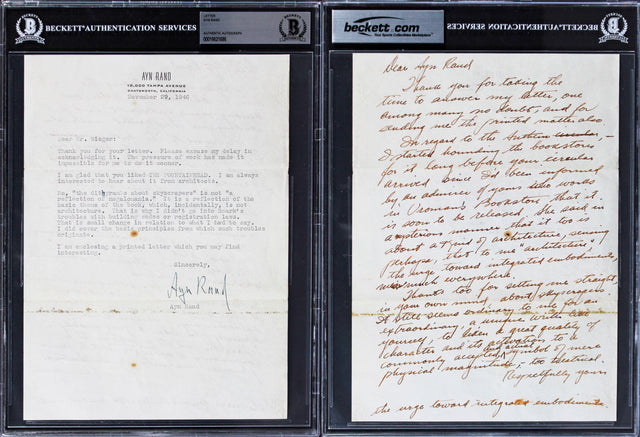 BECKETT® AUTHENTICATION SERVICES
LETTER
AYN RAND
AUTHENTIC AUTOGRAPH
BECKETT
AUTHENTICATION SERVICES
AYN RAND
10,000 TAMPA AVENUE
CHATSWORTH, CALIFORNIA
November 29, 1946
Dear Mr.
Thank you for your letter. Please excuse my delay in
acknowledging it. The pressure of work has made it
impossible for me to do it sooner.
I am glad that you liked THE FOUNTAINHEAD. I am always
interested to hear about it from architects.
No, "the dithyrambs about skyscrapers" is not "a
reflection of megalomania." It is a reflection of the
basic theme of the book, which, incidentally, is not
architecture. That is why I didn't go into Roark's
troubles with building codes or registration laws.
That is small change in relation to what I had to say.
I did cover the basic principles from which such troubles
originate.
I am enclosing a printed letter which you may find
interesting.
Sincerely,
Ayn Rand
Ayn Rand
beckett.com
Your Sports Collectibles Marketplace
BECKETT® AUTHENTICATION SERVICES
Dear Ayn Rand
Thank you for taking the
time to answer my letter, one
among many no doubt, and for
sending me the printed matter also.
In regard to the
I started hounding the bookstores
for it long before your circular
arrived since I'd been informed
by an admirer of yours who works
in Vroman's Bookstore that it
is soon to be released. She said in
a mysterious manner that it too is
about a kind of architecture, seeming
perhaps, that to me "architecture"/
the urge toward integrated embodiments,
was much everywhere.
Thanks too for setting me straight,
in your own mind, about skyscrapers.
It still seems ordinary to me for an
extraordinary, a unique writer like
yourself, to liken a great quality of
character and its activation to a
commonly accepted and actual symbol of mere
physical magnitude, – too theatrical.
Respectfully yours
the urge toward integrated embodiments.